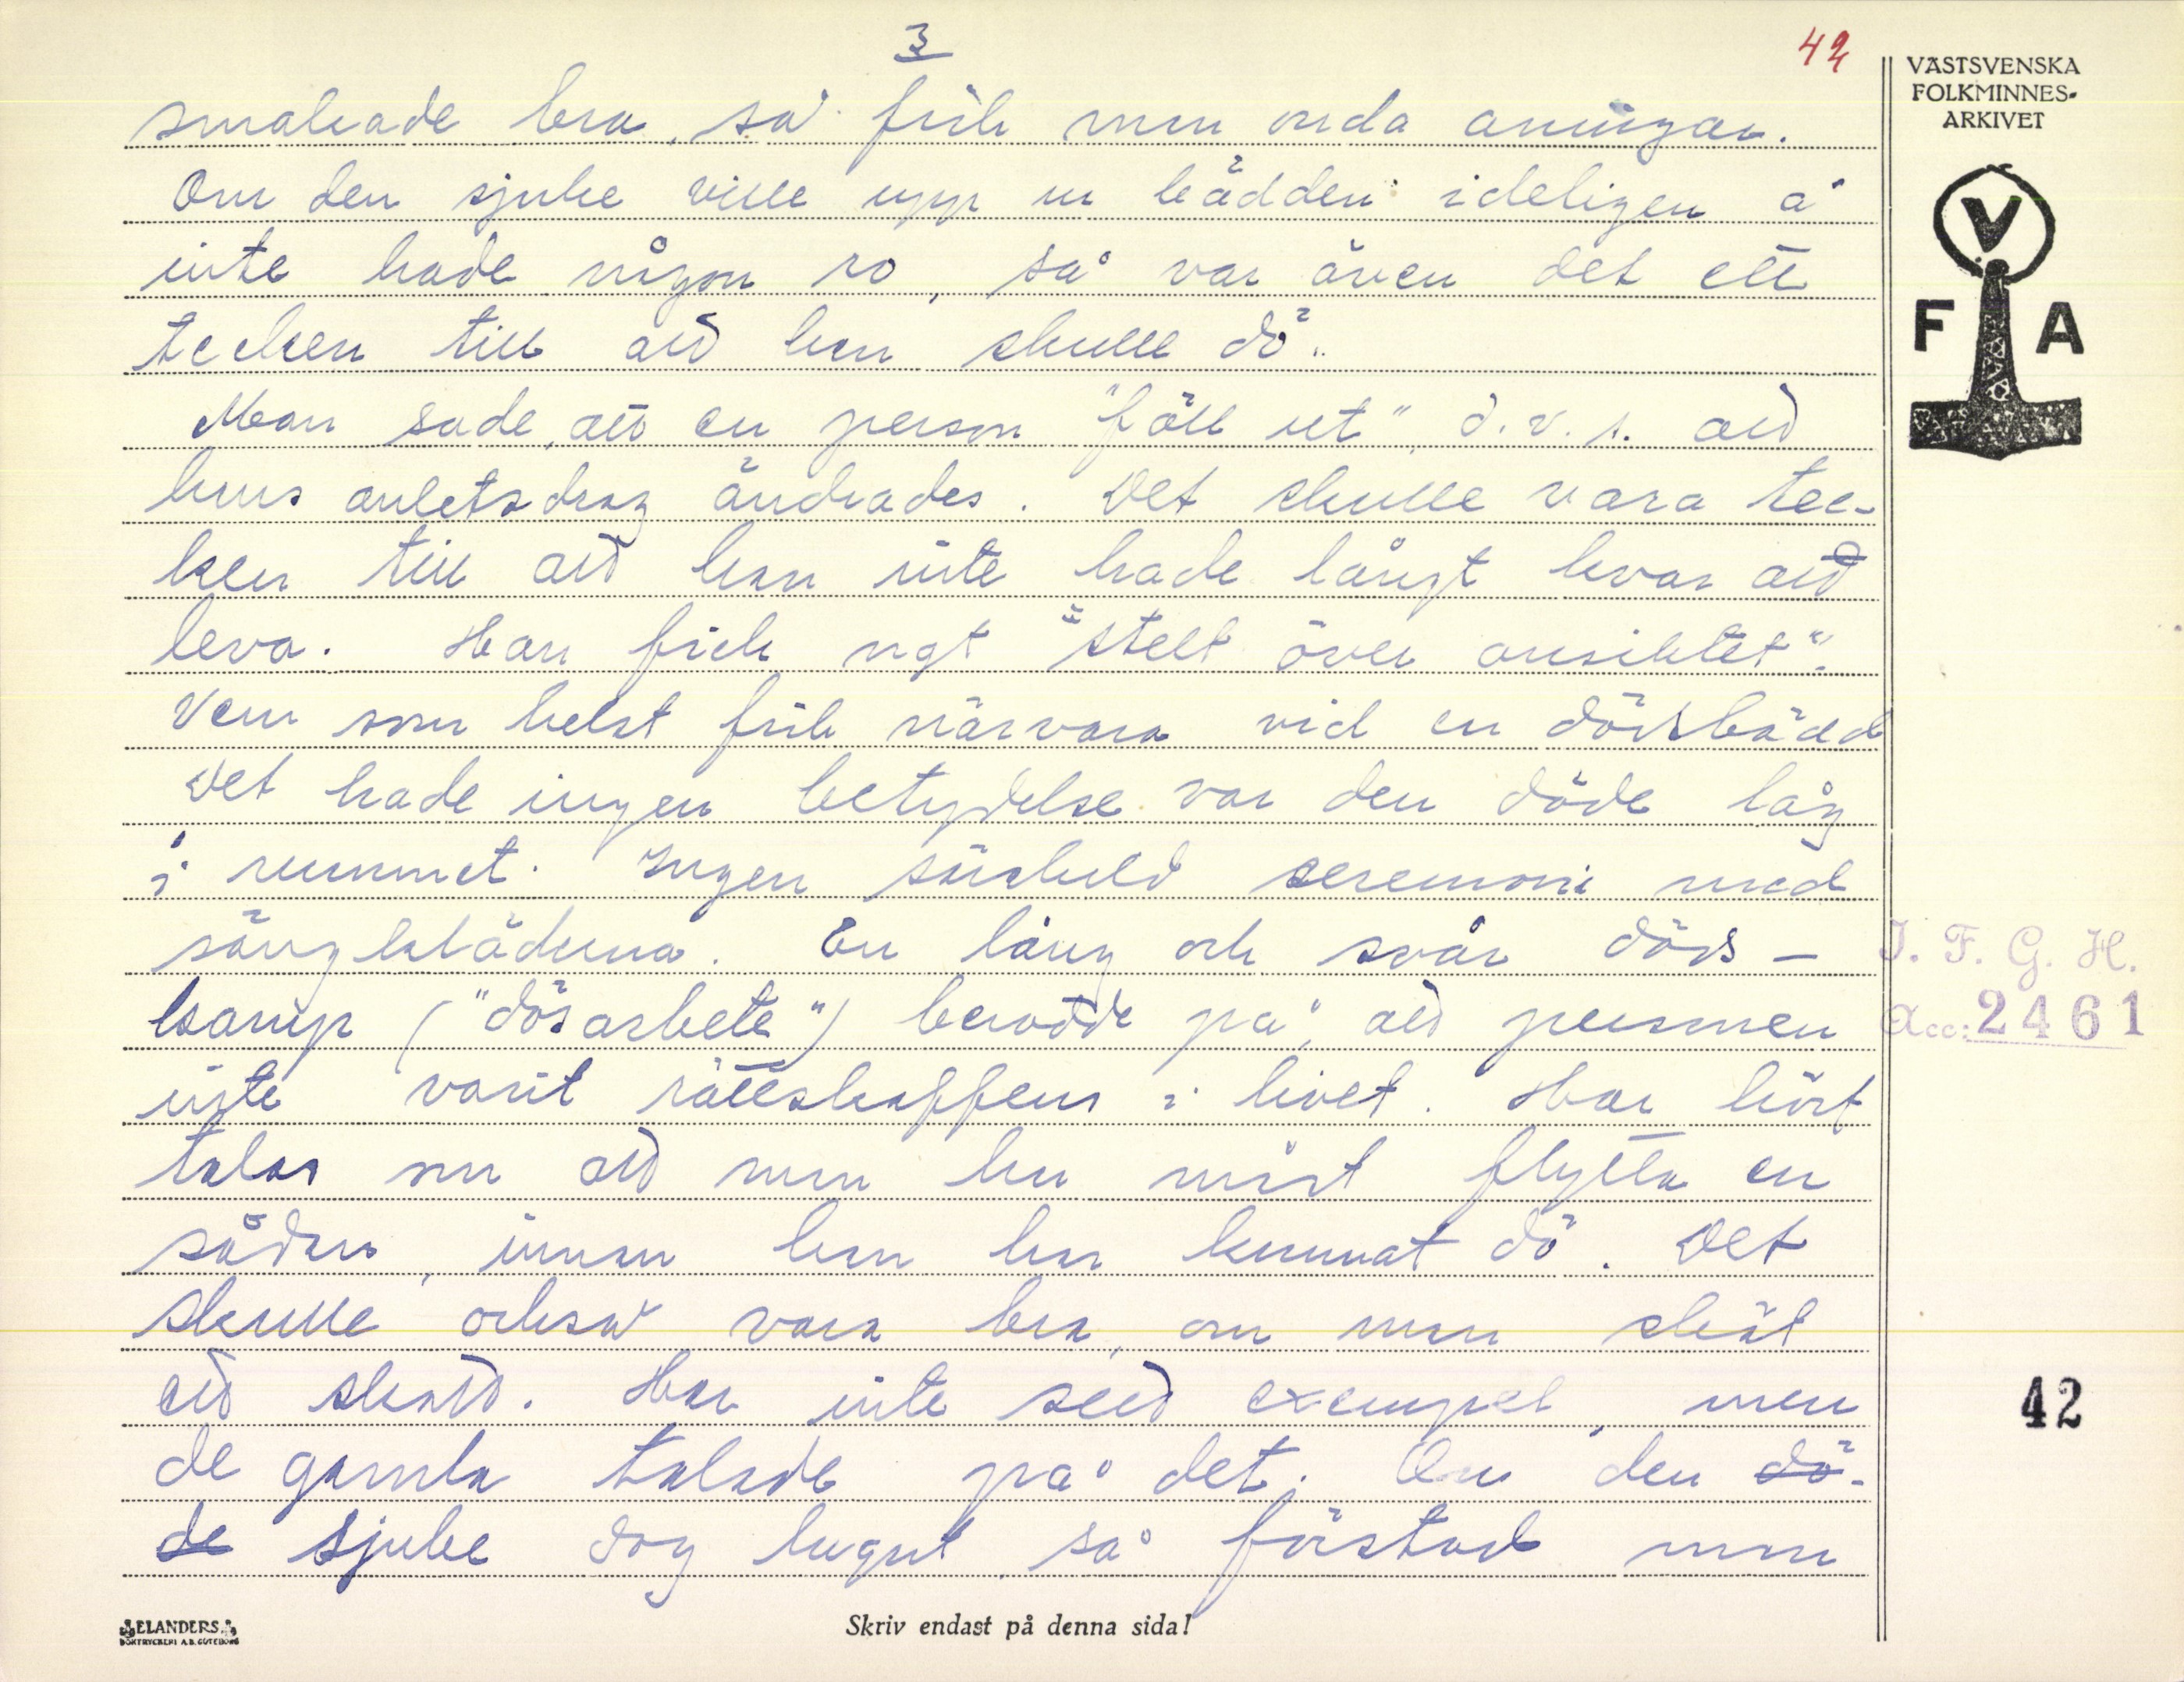 3
42
VÄSTSVENSKA
FOLKMINNES-
ARKIVET
V
F A
smakade bra, så fick man onda aningar.
Om den sjuke ville upp ur bädden ideligen å
inte hade någon ro, så var även det ett
tecken till att han skulle dö.
Man sade, att en person "föll ut", d.v.s. att
hans anletsdrag ändrades. Det skulle vara tec-
ken till att han inte hade långt kvar att
leva. Han fick ngt "stelt över ansiktet".
Vem som helst fick närvara vid en dödsbädd
Det hade ingen betydelse var den döde låg
i rummet. Ingen särskild seremoni med
sängkläderna. En lång och svår döds-
kamp ("dösarbete") berodde på, att personen
inte varit rättskaffens i livet. Har hört
talas om att man har måst flytta en
sådan, innan han har kunnat dö. Det
skulle också vara bra, om man sköt
ett skott. Har inte sett exempel, men
de gamla talade på det. Om den dö-
de sjuke dog lugnt, så förstod man
I. F. G. H.
Acc: 2461
42
ELANDERS
BOKTRYCKERI A.B. GÖTEBORG
Skriv endast på denna sida!